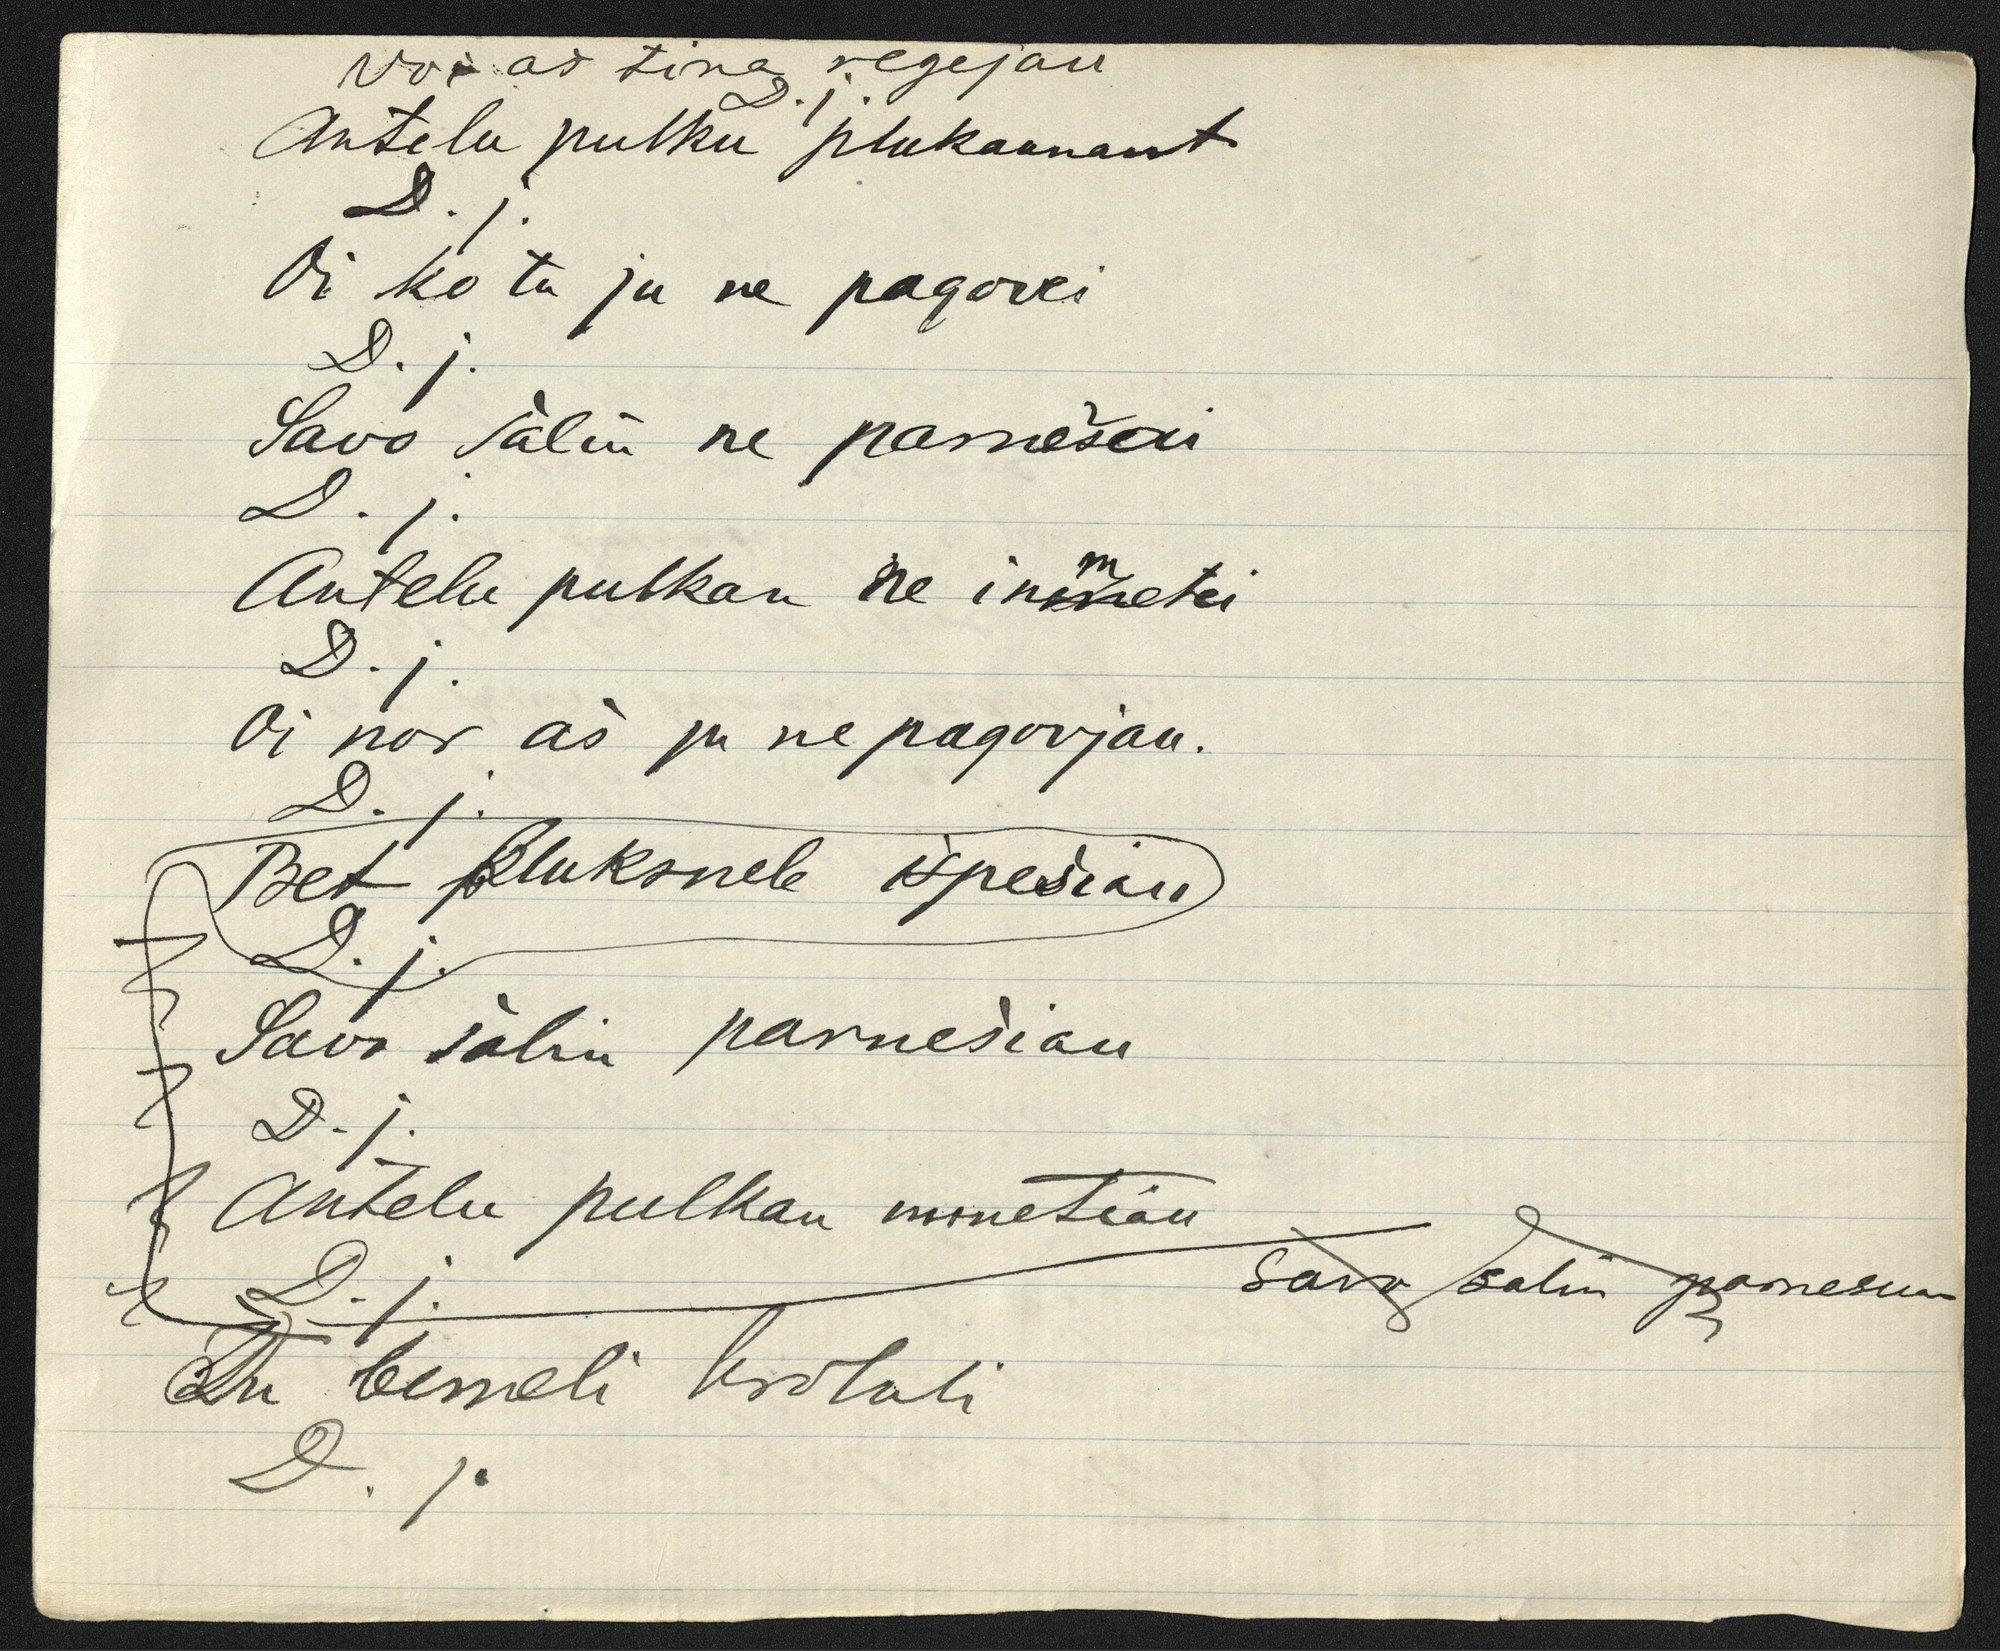 Voi as tina regejau
D. j.
Antelu pulku plukaunant
D. j.
Oi ko tu ju ne pagovei
D. j.
Savo šalin ne parnešei
D. j.
Antelu pulkan ne inmetei
D. j.
Oi nor aš ju ne pagovjau.
D. j.
Bet pluksnele išpešiau
D. j.
Savo šalin parnešiau
D. j.
Antelu pulkan inmetiau
D. j.
Savo salin parnesiau
D. j.